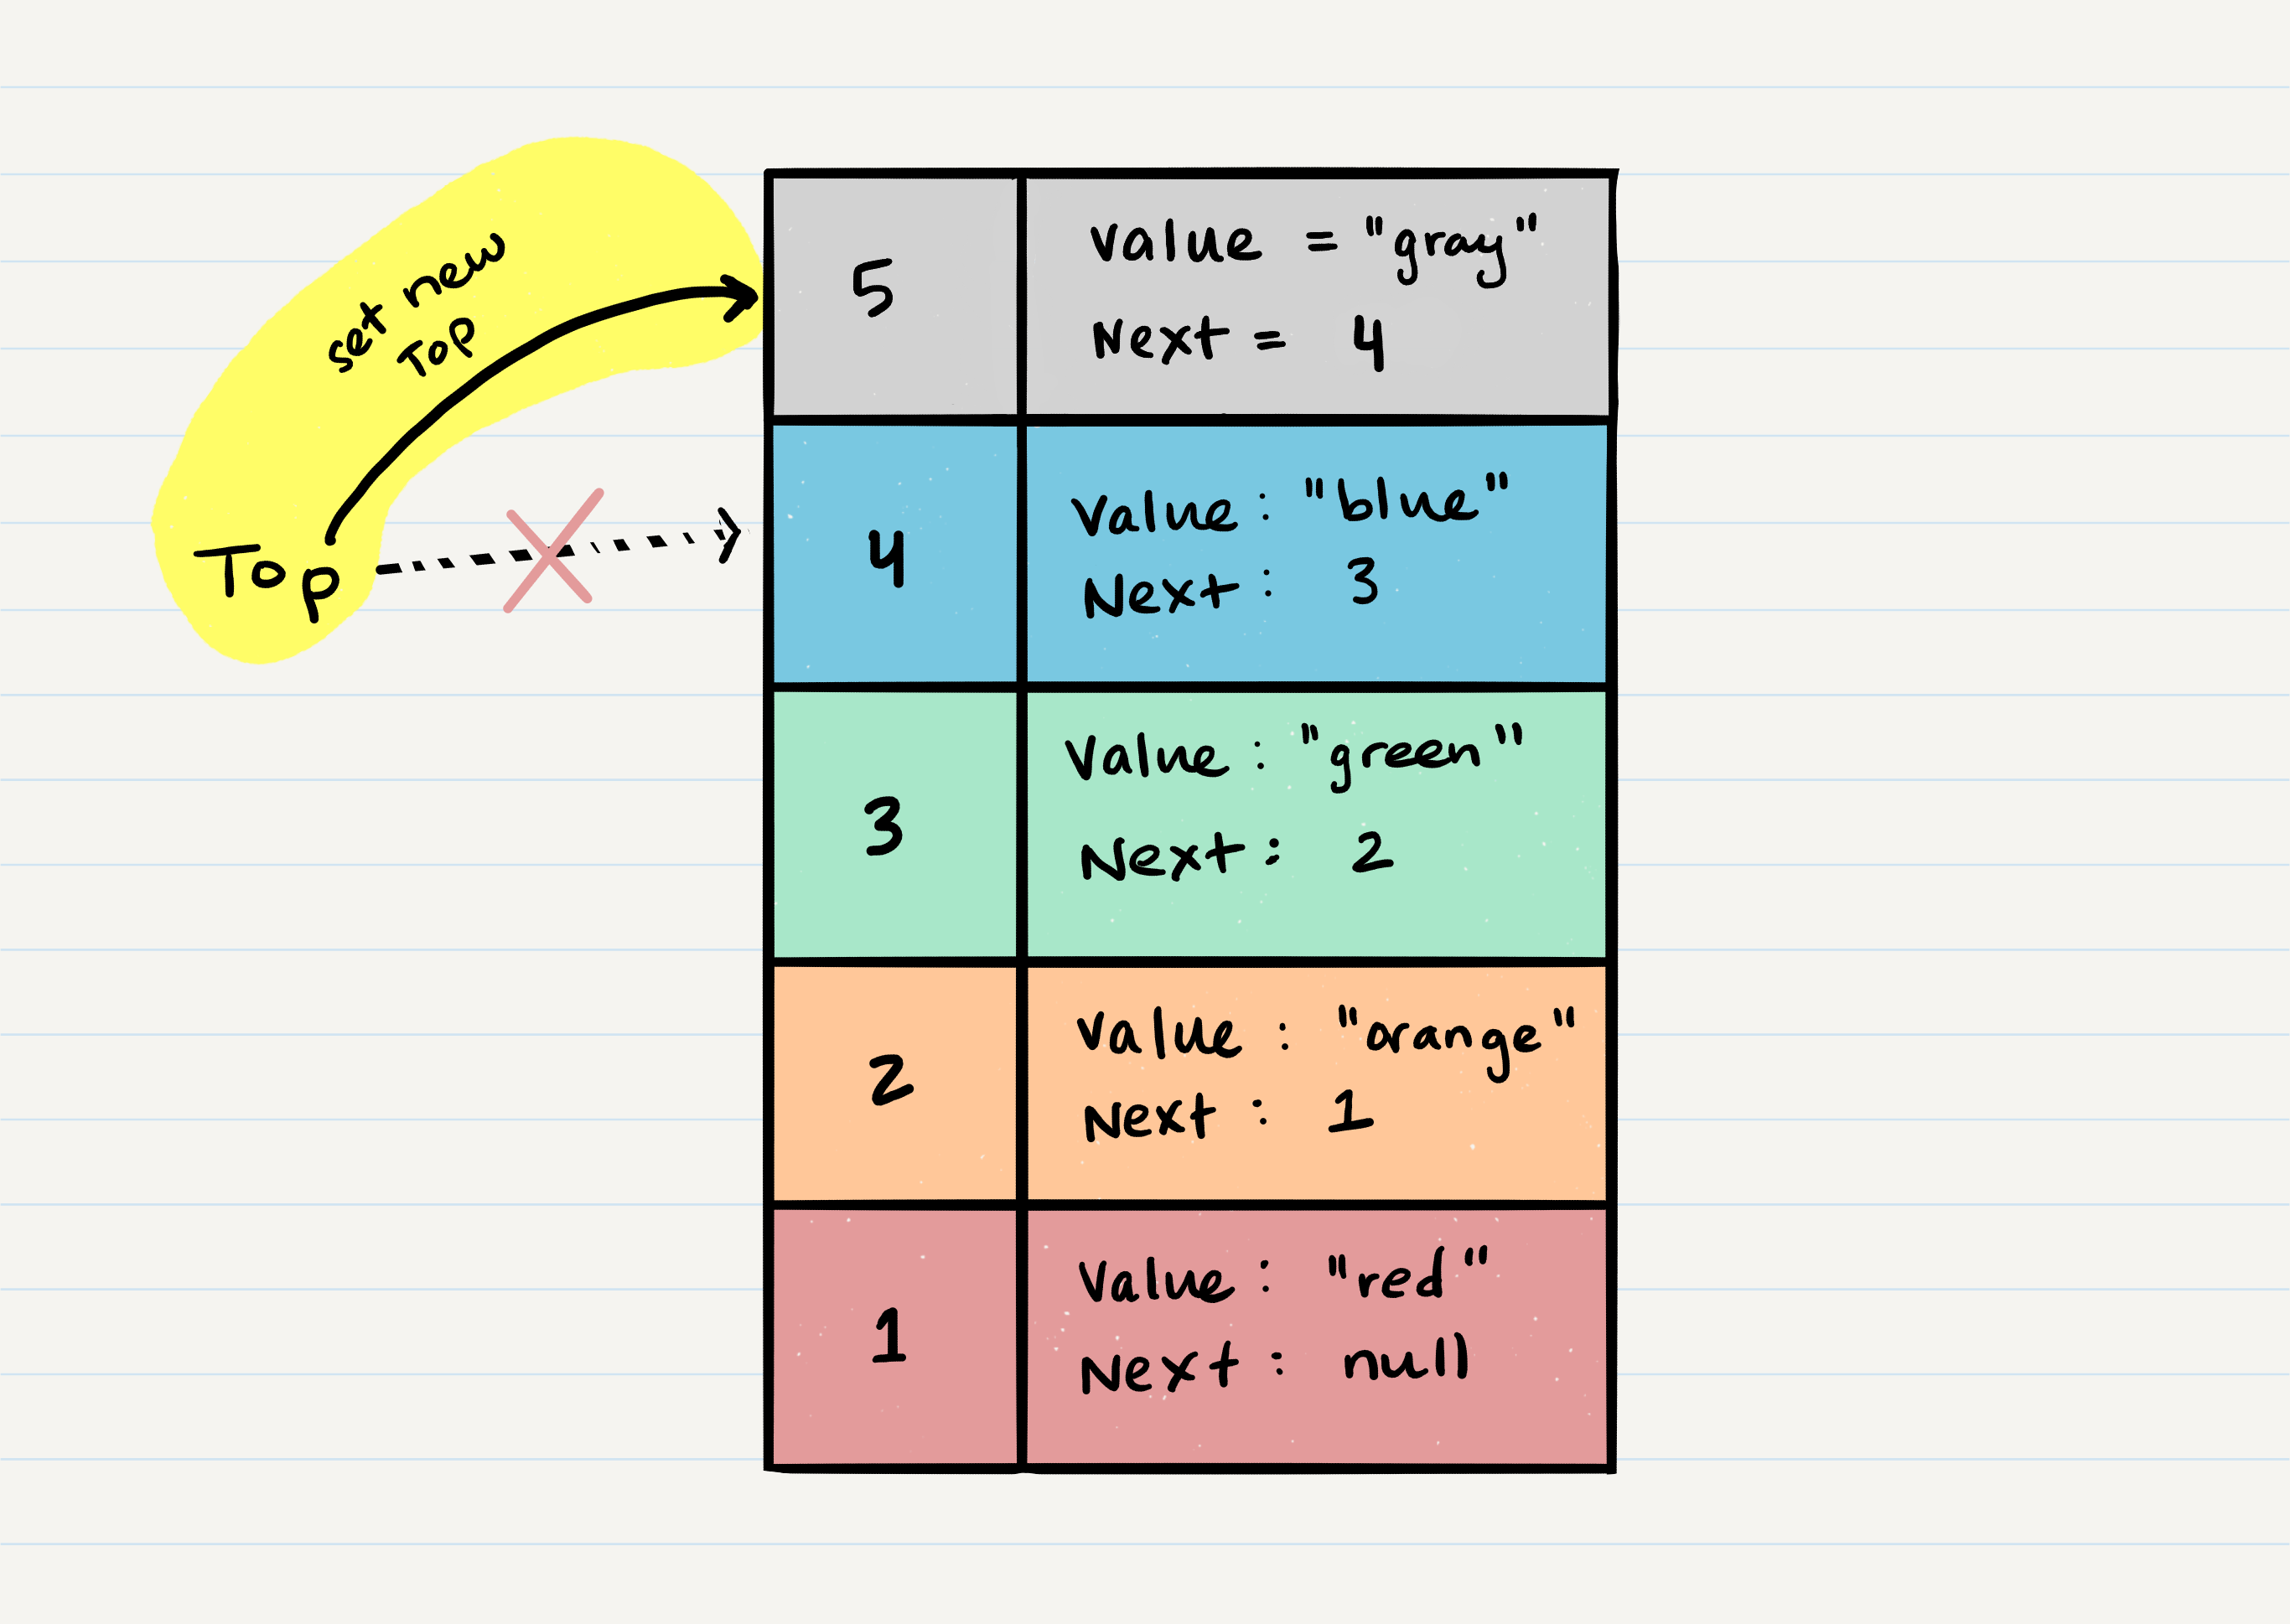 set new
Top
Top
5
value = "gray"
Next = 4
4
Value : "blue"
Next : 3
3
Value : "green"
Next : 2
2
Value : "orange"
Next : 1
1
Value : "red"
Next : null